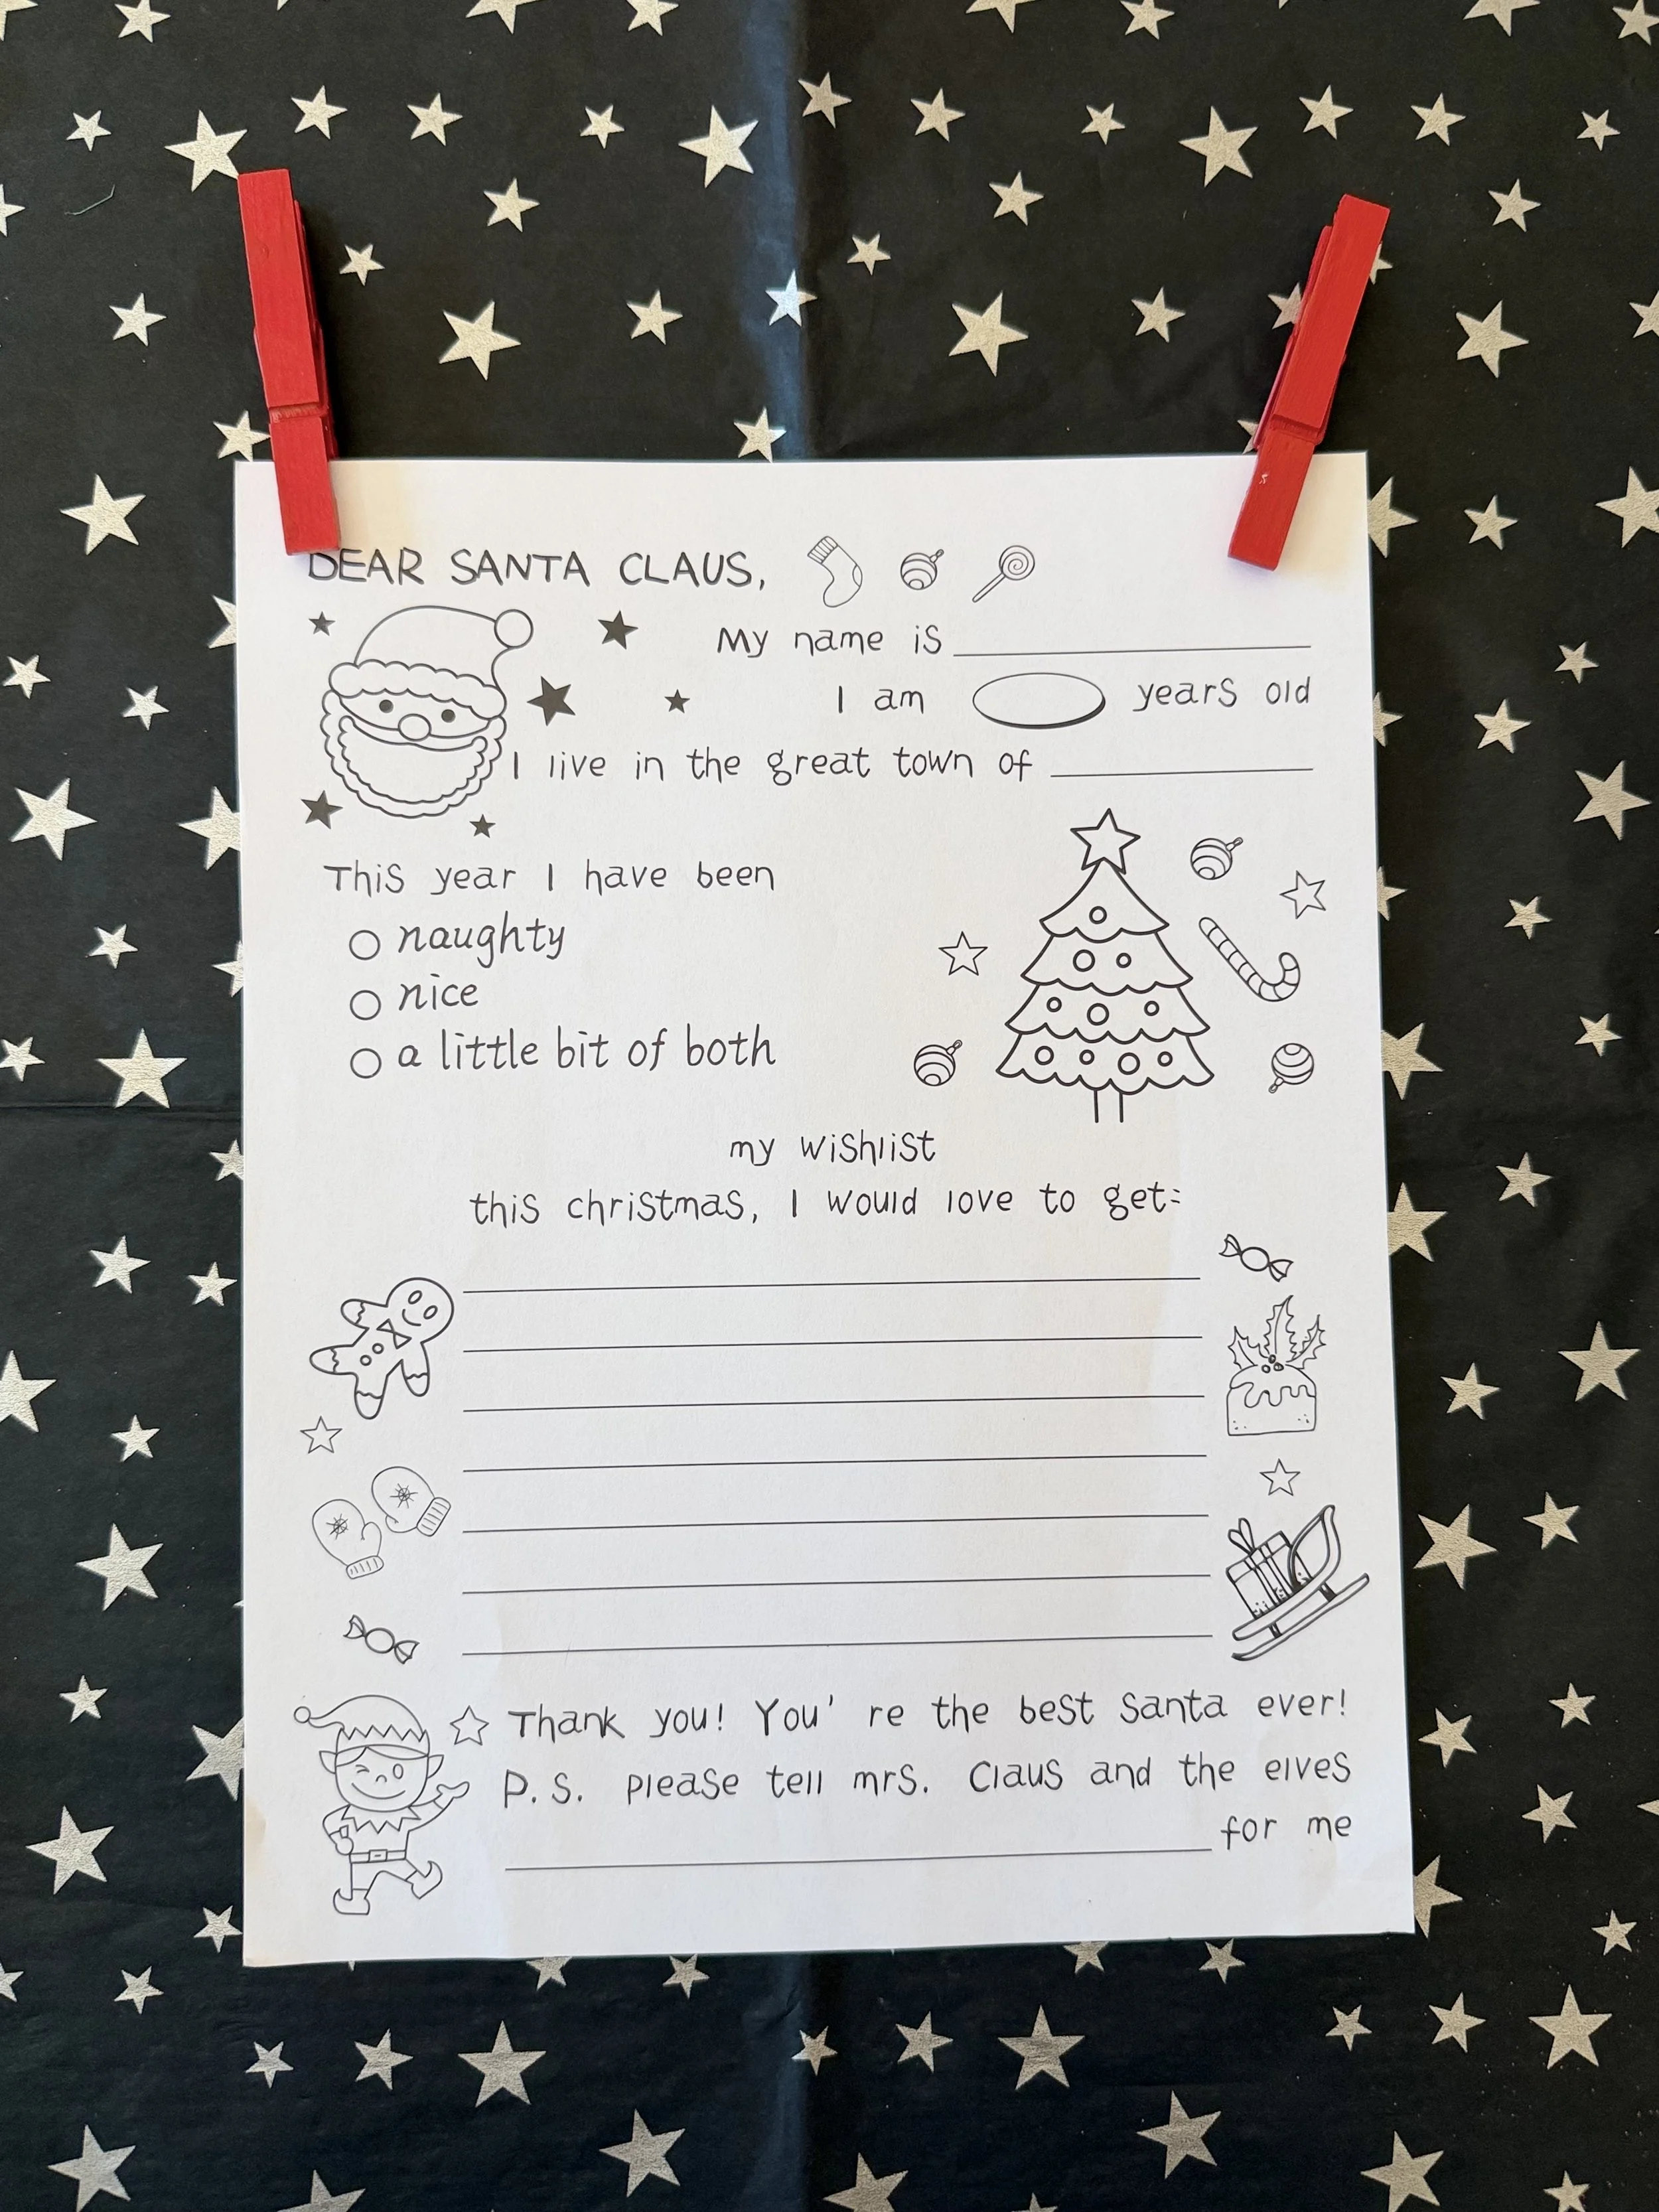 DEAR SANTA CLAUS,
My name is
I am years old
I live in the great town of
This year I have been
naughty
nice
a little bit of both
my wishlist
this christmas, I would love to get:
Thank you! You' re the best Santa ever!
P.S. please tell mrs. Claus and the elves
for me